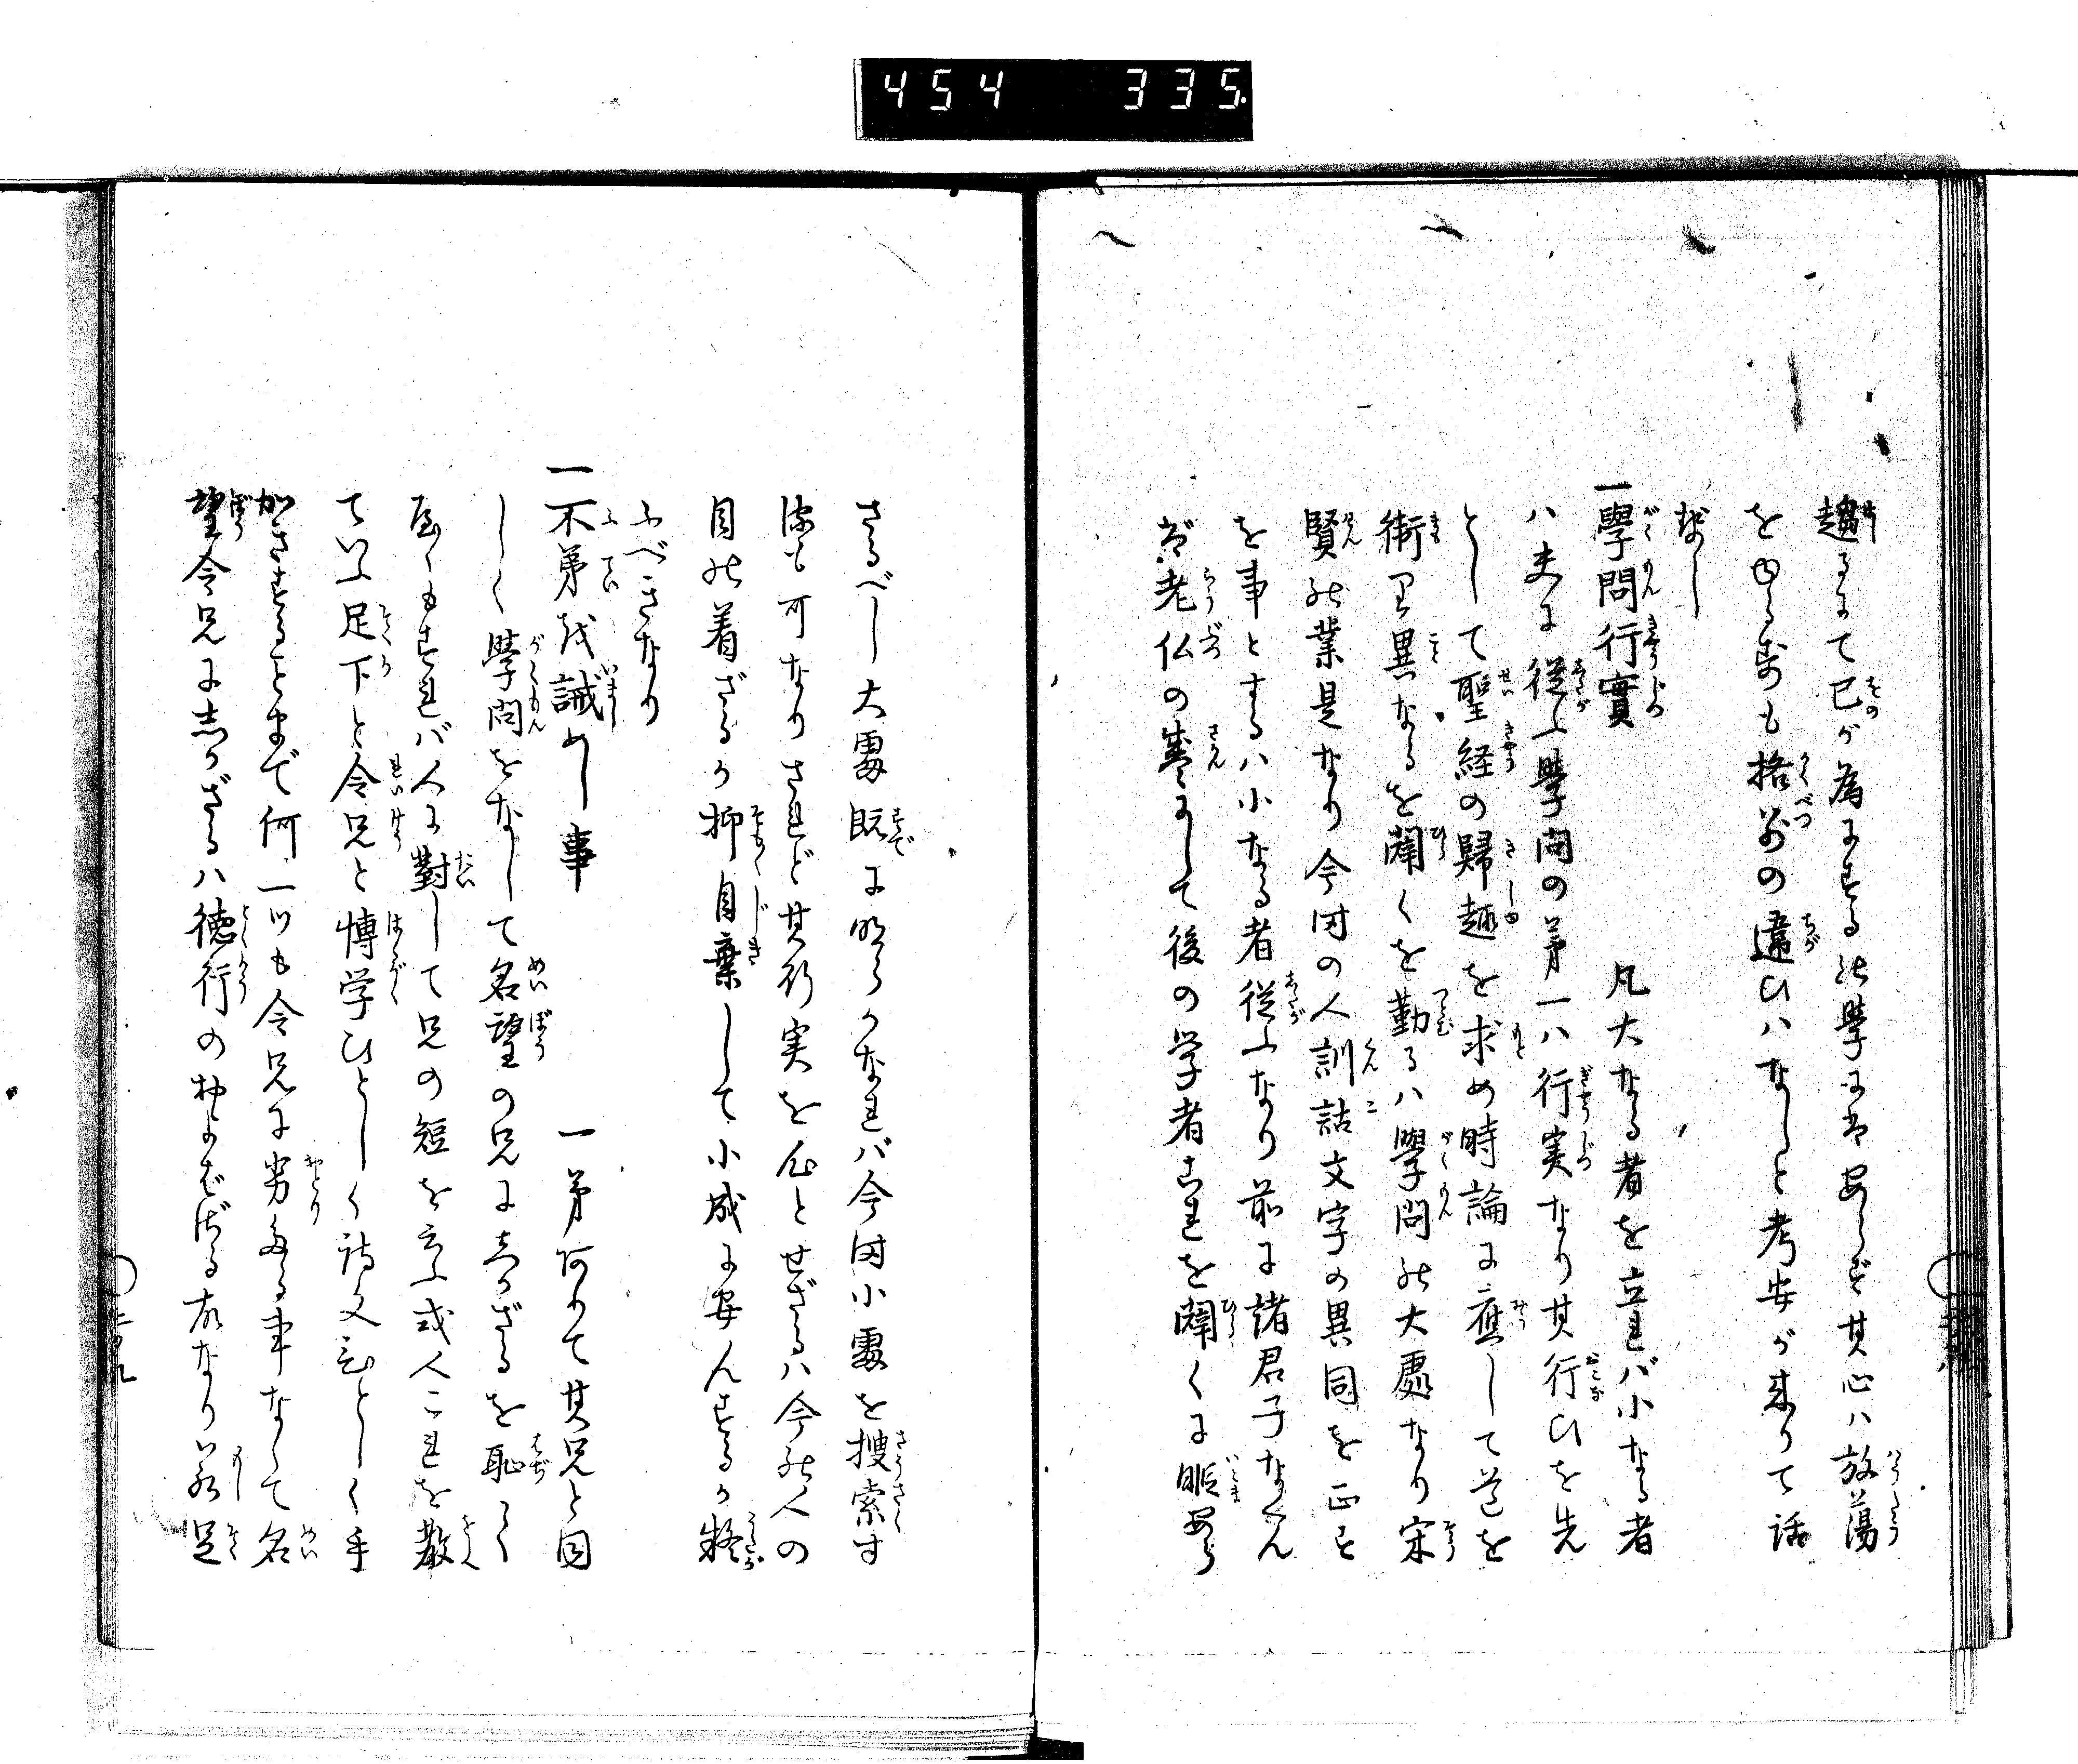 454 335
趨るにて己が為にする の學 は あらず其心ハ放蕩
を も格別の違ひハなしと考安が来りて話
せし
一學問行實 凡大なる者を立れバ小なる者
ハ夫に従ふ學問の第一ハ行実なり其行ひを先
として聖経の歸趣を求め時論に應して道を
衛り異なるを闢くを勤るハ學問の大處なり宋
賢の業是なり今時の人訓詁文字の異同を正す
を事とするハ小なる者従ふなり前に諸君子なくん
ば老仏の害 にして後の学者これを闢くに暇あら
ざるべし大處既に明らかなれバ今時小處を捜索す
るも可なりされど其行実を心とせざるハ今の人の
目の着ざるか抑自棄して小成に安んするか疑
ふべきなり
一不弟を誡めし事 一弟ありて其兄と同
しく學問をなして名望の兄にしかざるを恥 く
も すれバ人に對して兄の短を云ふ或人これを
ていふ足下と令兄と博学ひとしく詩文ひとしく手
かきするとまで何一ツも令兄に劣 る事なくて名
望令兄に志かざるハ徳行の およばざる故なり若足